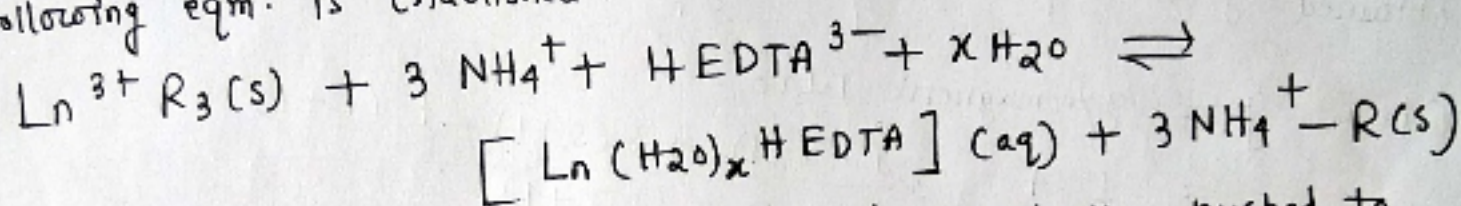 ollowing eqm. is
Ln³⁺ R₃(s) + 3 NH₄⁺ + HEDTA³⁻ + xH₂O ⇌
[Ln(H₂O)ₓ HEDTA](aq) + 3 NH₄⁺–R(s)
to